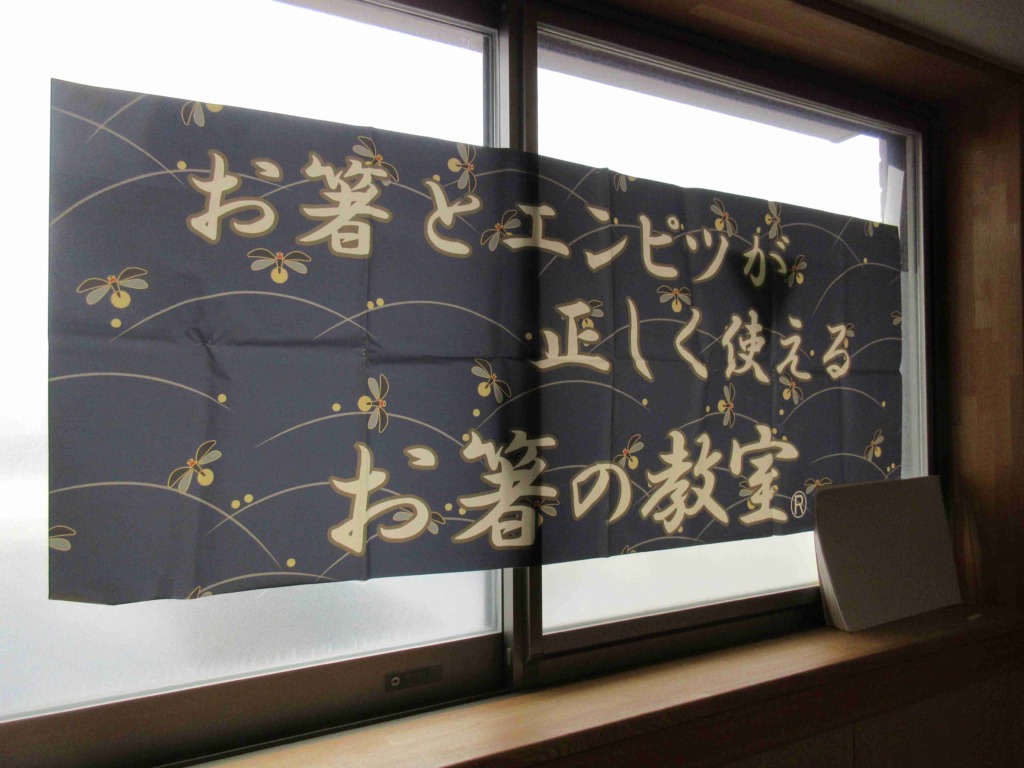 お箸とエンピツが
正しく使える
お箸の教室®